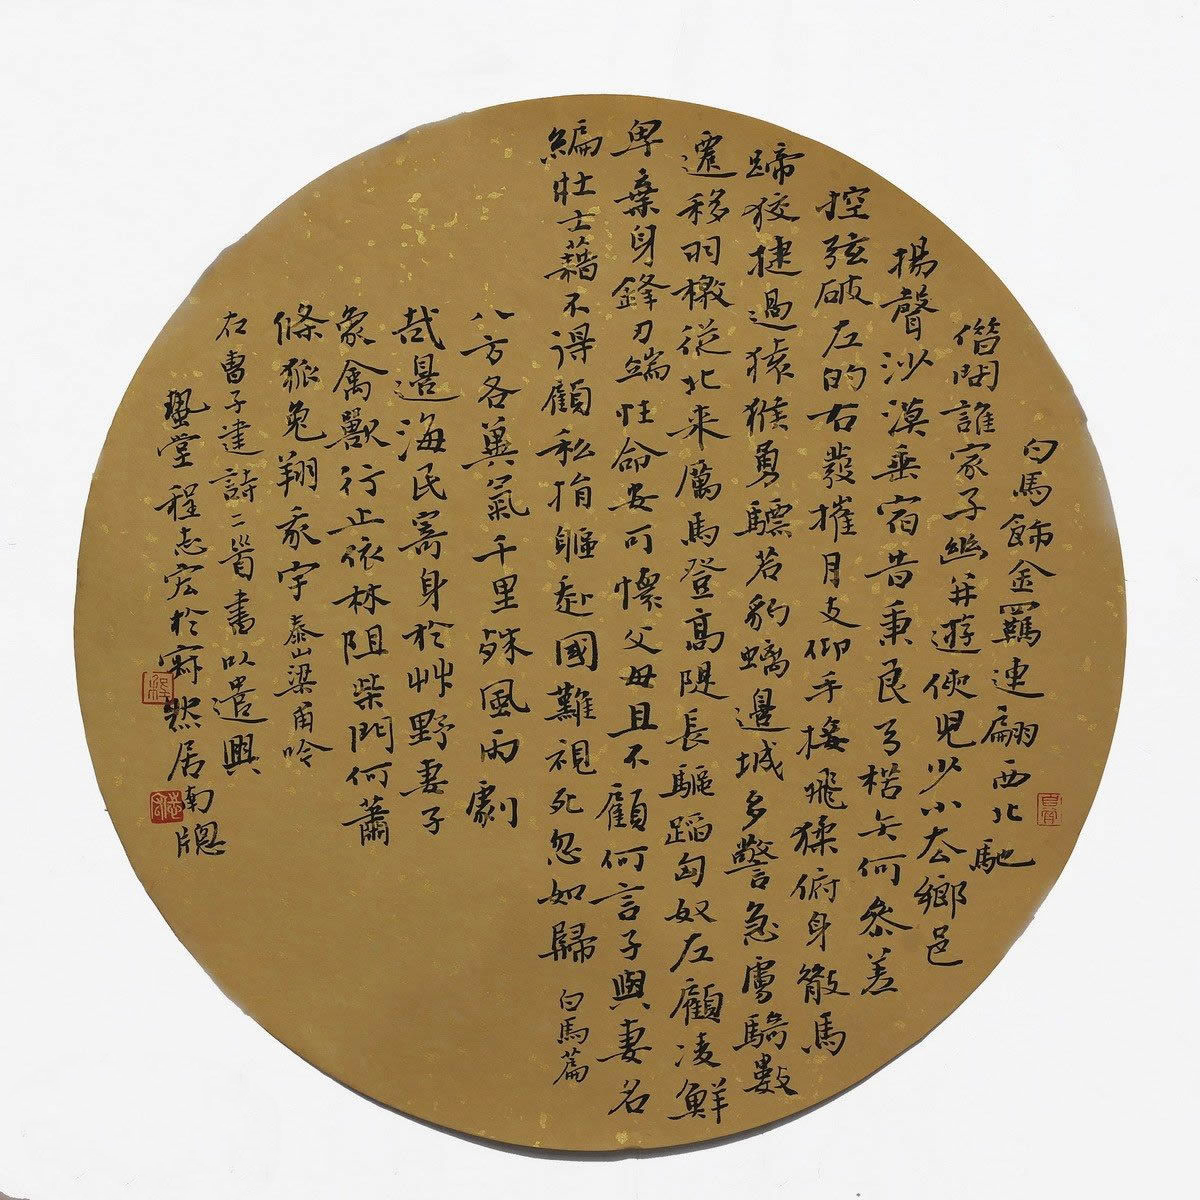 白馬飾金羈連翩西北馳
借問誰家子幽并遊俠兒少小去鄉邑
揚聲沙漠垂宿昔秉良弓楛矢何參差
控弦破左的右發摧月支仰手接飛猱俯身散馬
蹄狡捷過猿猴勇驃若豹螭邊城多警急虜騎數
遷移羽檄從北來厲馬登高隄長驅蹈匈奴左顧凌鮮
卑棄身鋒刃端性命安可懷父母且不顧何言子與妻名
編壯士藉不得顧私捐軀赴國難視死忽如歸 白馬篇
八方各異氣千里殊風雨劇
哉邊海民寄身於艸野妻子
象禽獸行止依林阻柴門何蕭
條狐兔翔我宇 泰山梁甫吟
右曹子建詩二首書以遣興
堂程志宏於寂然居南牕